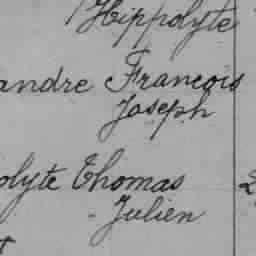 Hippolyte
andre François
Joseph
olyte Thomas
Julien